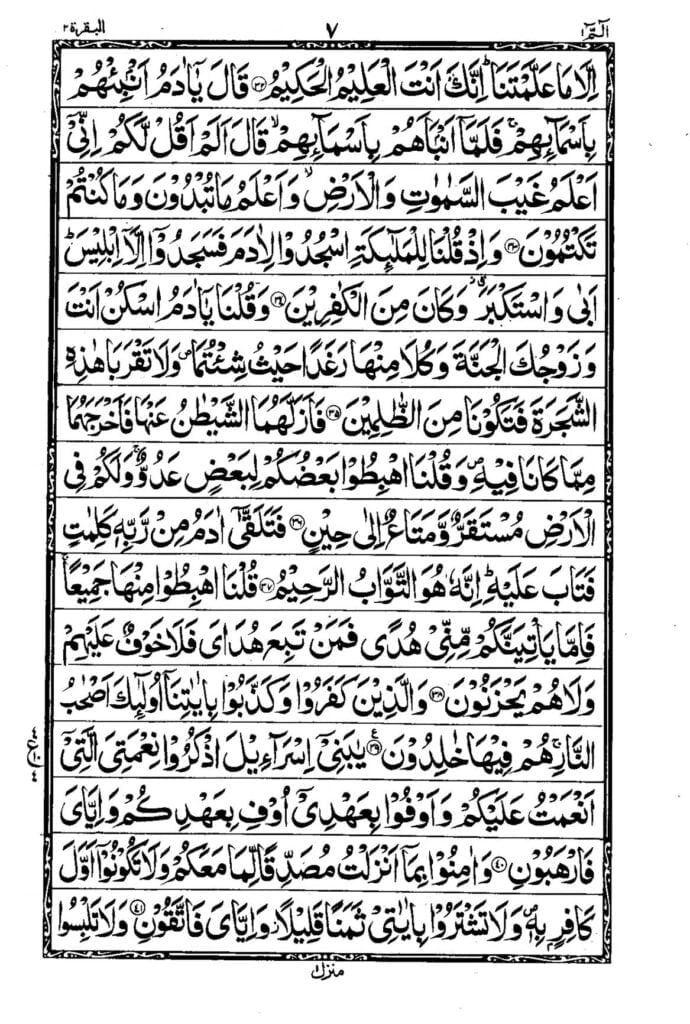 الٓمّٓ ١ ٧ البقرة ٢
اِلَّا مَا عَلَّمْتَنَا ؕ اِنَّكَ اَنْتَ الْعَلِيْمُ الْحَكِيْمُ ﴿۳۲﴾ قَالَ يٰۤاٰدَمُ اَنْۢبِئْهُمْ
بِاَسْمَآىِٕهِمْ ۚ فَلَمَّاۤ اَنْۢبَاَهُمْ بِاَسْمَآىِٕهِمْ ۙ قَالَ اَلَمْ اَقُلْ لَّكُمْ اِنِّیْۤ
اَعْلَمُ غَيْبَ السَّمٰوٰتِ وَالْاَرْضِ ۙ وَاَعْلَمُ مَا تُبْدُوْنَ وَمَا كُنْتُمْ
تَكْتُمُوْنَ ﴿۳۳﴾ وَاِذْ قُلْنَا لِلْمَلٰٓىِٕكَةِ اسْجُدُوْا لِاٰدَمَ فَسَجَدُوْۤا اِلَّاۤ اِبْلِيْسَ ؕ
اَبٰی وَاسْتَكْبَرَ ٭ۗ وَكَانَ مِنَ الْكٰفِرِيْنَ ﴿۳۴﴾ وَقُلْنَا يٰۤاٰدَمُ اسْكُنْ اَنْتَ
وَزَوْجُكَ الْجَنَّةَ وَكُلَا مِنْهَا رَغَدًا حَيْثُ شِئْتُمَا ۪ وَلَا تَقْرَبَا هٰذِهِ
الشَّجَرَةَ فَتَكُوْنَا مِنَ الظّٰلِمِيْنَ ﴿۳۵﴾ فَاَزَلَّهُمَا الشَّيْطٰنُ عَنْهَا فَاَخْرَجَهُمَا
مِمَّا كَانَا فِيْهِ ۪ وَقُلْنَا اهْبِطُوْا بَعْضُكُمْ لِبَعْضٍ عَدُوٌّ ۚ وَلَكُمْ فِی
الْاَرْضِ مُسْتَقَرٌّ وَّمَتَاعٌ اِلٰی حِيْنٍ ﴿۳۶﴾ فَتَلَقّٰۤی اٰدَمُ مِنْ رَّبِّهٖ كَلِمٰتٍ
فَتَابَ عَلَيْهِ ؕ اِنَّهٗ هُوَ التَّوَّابُ الرَّحِيْمُ ﴿۳۷﴾ قُلْنَا اهْبِطُوْا مِنْهَا جَمِيْعًا ۚ
فَاِمَّا يَاْتِيَنَّكُمْ مِّنِّیْ هُدًی فَمَنْ تَبِعَ هُدَایَ فَلَا خَوْفٌ عَلَيْهِمْ
وَلَا هُمْ يَحْزَنُوْنَ ﴿۳۸﴾ وَالَّذِيْنَ كَفَرُوْا وَكَذَّبُوْا بِاٰيٰتِنَاۤ اُولٰٓىِٕكَ اَصْحٰبُ
النَّارِ ۚ هُمْ فِيْهَا خٰلِدُوْنَ ﴿۳۹﴾ ع يٰبَنِیْۤ اِسْرَآءِيْلَ اذْكُرُوْا نِعْمَتِیَ الَّتِیْۤ
اَنْعَمْتُ عَلَيْكُمْ وَاَوْفُوْا بِعَهْدِیْۤ اُوْفِ بِعَهْدِكُمْ وَاِيَّایَ
فَارْهَبُوْنِ ﴿۴۰﴾ وَاٰمِنُوْا بِمَاۤ اَنْزَلْتُ مُصَدِّقًا لِّمَا مَعَكُمْ وَلَا تَكُوْنُوْۤا اَوَّلَ
كَافِرٍۭ بِهٖ ۪ وَلَا تَشْتَرُوْا بِاٰيٰتِیْ ثَمَنًا قَلِيْلًا ؗ وَّاِيَّایَ فَاتَّقُوْنِ ﴿۴۱﴾ وَلَا تَلْبِسُوا
منزل ١